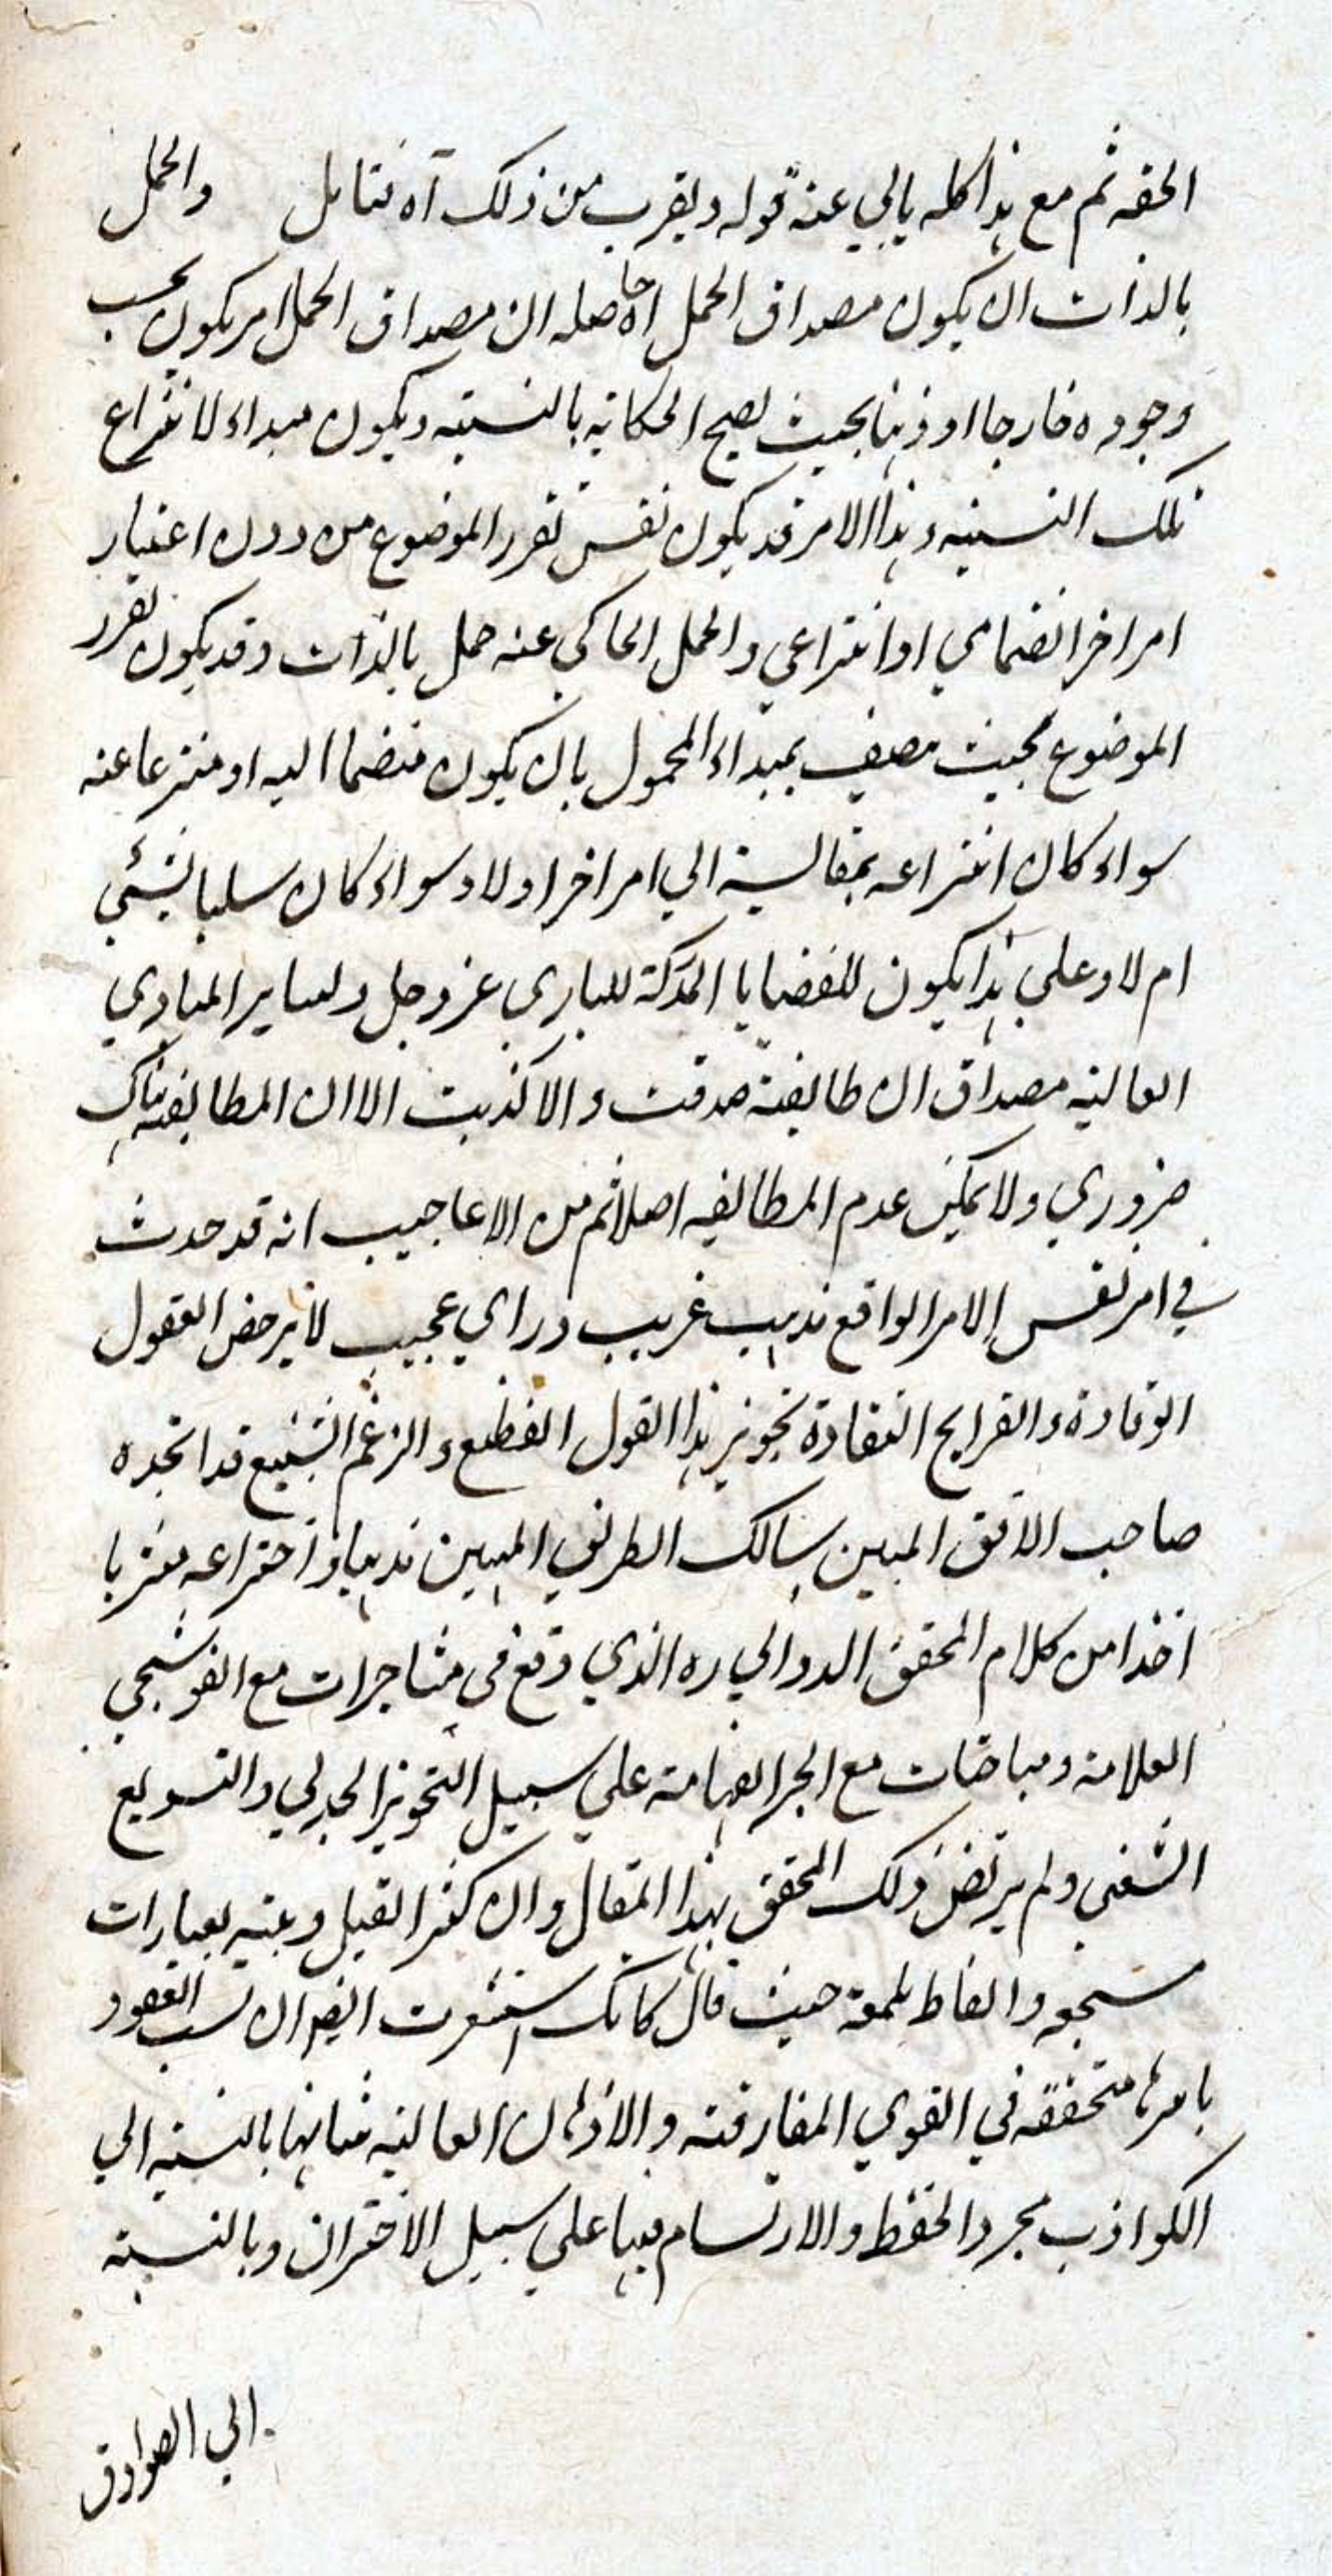 الحقه ثم مع هذا كله يابي عنه قوله ويقرب من ذلك آه فتامل والحمل
بالذات ان يكون مصداق الحمل اه حاصله ان مصداق الحمل امر يكون بحسب
وجوده خارجا او ذهنا بحيث يصح الحكاية بالنسبته ويكون مبداء لانتزاع
تلك النسبته وهذا الامر قد يكون نفس تقرر الموضوع من دون اعتبار
امر اخر انضمامي او انتزاعي والحمل الحاكي عنه حمل بالذات وقد يكون تقرر
الموضوع بحيث يتصف بمبداء المحمول بان يكون منضما اليه او منتزعا عنه
سواء كان انتزاعه بمقايسة الي امر اخر او لا وسواء كان سلبا لشيء
ام لا وعلي هذا يكون للقضايا المدركة للباري عز وجل ولساير المبادي
العالية مصداق ان طابقته صدقت والا كذبت الا ان المطابقة هناك
ضروري ولا يمكن عدم المطابقه اصلا ثم من الاعاجيب انه قد حدث
في امر نفس الامر الواقع مذهب غريب وراي عجيب لا يرخص العقول
الوقادة والقرايح النقادة تجويز هذا القول الفظيع والزعم الشنيع قد اتخذه
صاحب الافق المبين سالك الطريق المبين مذهبا واختراعه مشربا
اخذا من كلام المحقق الدواني ره الذي وقع في مشاجرات مع القوشجي
العلامة ومباحثات مع الحبر الفهامة علي سبيل التجويز الجدلي والتسويغ
الشغبي ولم يرتض ذلك المحقق بهذا المقال وان كثر القيل وعنه بعبارات
مسجعه والفاظ ملمعة حيث قال كانك استشعرت ايضا ان نسب العقود
باسرها متحققه في القوي المفارقته والاذهان العالية شانها بالنسبة الي
الكواذب مجرد الحفظ والارتسام فيها علي سبيل الاختزان وبالنسبته
الي الصوادق